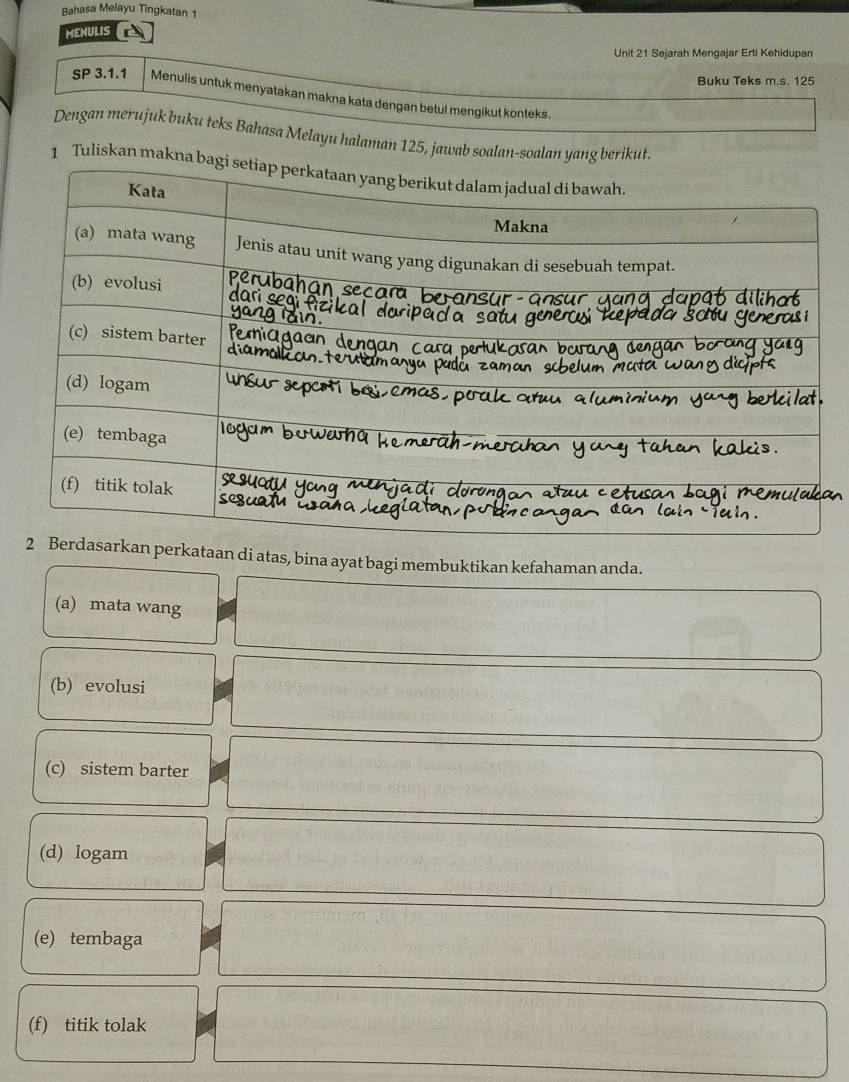 Bahasa Melayu Tingkatan 1
MENULIS
Unit 21 Sejarah Mengajar Erti Kehidupan
SP 3.1.1 Menulis untuk menyatakan makna kata dengan betul mengikut konteks.
Buku Teks m.s. 125
Dengan merujuk buku teks Bahasa Melayu halaman 125, jawab soalan-soalan yang berikut.
1 Tuliskan makna bagi setiap perkataan yang berikut dalam jadual di bawah.
Kata Makna
(a) mata wang Jenis atau unit wang yang digunakan di sesebuah tempat.
(b) evolusi perubahan secara beransur-ansur yang dapat dilihat
dari segi fizikal daripada satu generasi kepada satu generasi
yang lain.
(c) sistem barter Perniagaan dengan cara pertukaran barang dengan barang yang
diamalkan terutamanya pada zaman sebelum mata wang dicipta
(d) logam unsur seperti besi, emas, perak atau aluminium yang berkilat.
(e) tembaga logam berwarna kemerah-merahan yang tahan kakis.
(f) titik tolak sesuatu yang menjadi dorongan atau cetusan bagi memulakan
sesuatu usaha, kegiatan, perbincangan dan lain-lain.
2 Berdasarkan perkataan di atas, bina ayat bagi membuktikan kefahaman anda.
(a) mata wang
(b) evolusi
(c) sistem barter
(d) logam
(e) tembaga
(f) titik tolak